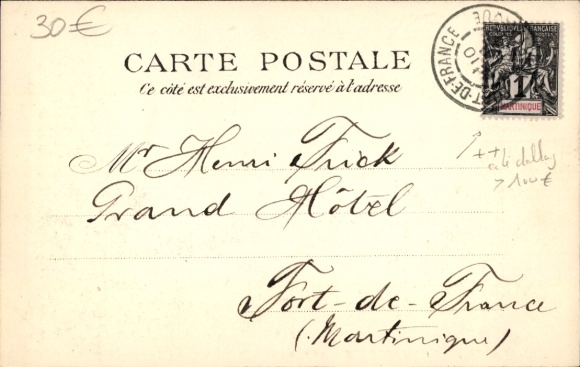 30€
CARTE POSTALE
Ce côté est exclusivement réservé à l'adresse
RÉPUBLIQUE FRANÇAISE
COLONIES POSTES
1
MARTINIQUE
FORT-DE-FRANCE
++
> 100€
Mr Henri Frick
Grand Hôtel
Fort-de-France
(Martinique)